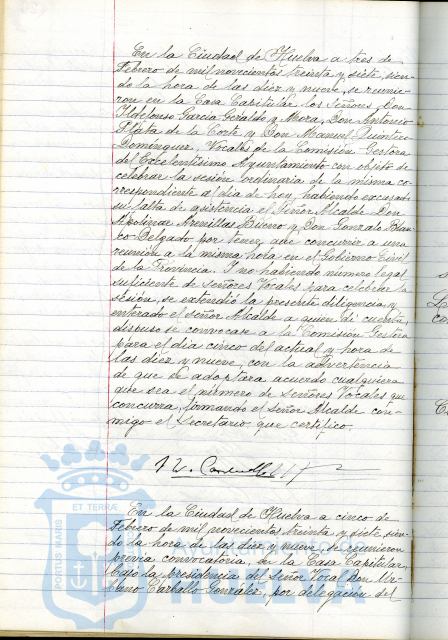 En la Ciudad de Huelva a tres de
Febrero de mil novecientos treinta y siete, sien-
do la hora de las diez y nueve, se reunie-
ron en la Casa Capitular los Señores Don
Ildefonso García Geraldo y Mora, Don Antonio
Plata de la Corte y Don Manuel Quintero
Domínguez, Vocales de la Comisión Gestora
del Excelentísimo Ayuntamiento con objeto de
celebrar la sesión ordinaria de la misma co-
rrespondiente al día de hoy, habiendo excusado
su falta de asistencia el Señor Alcalde Don
Apolinar Arenillas Bueno y Don Gonzalo Blan-
co Delgado por tener que concurrir a una
reunión a la misma hora en el Gobierno Civil
de la Provincia. Y no habiendo número legal
suficiente de señores Vocales para celebrar la
sesión, se extendió la presente diligencia, y
enterado el señor Alcalde a quien dí cuenta,
dispuso se convocase a la Comisión Gestora
para el día cinco del actual y hora de
las diez y nueve, con la advertencia
de que se adoptara acuerdo cualquiera
que sea el número de señores Vocales que
concurra, firmando el señor Alcalde con-
migo el Secretario que certifico.
En la Ciudad de Huelva a cinco de
Febrero de mil novecientos treinta y siete, sien-
do la hora de las diez y nueve, se reunieron
previa convocatoria, en la Casa Capitular,
bajo la presidencia del señor Vocal Don Ur-
bano Carballo González, por delegación del
ET TERRÆ
PORTUS MARIS
HUELVA